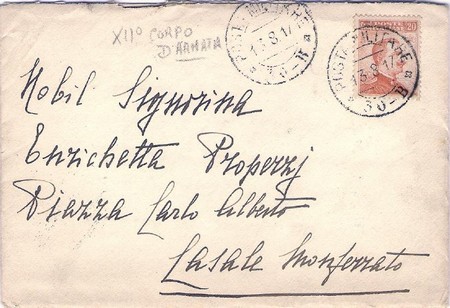 XII° CORPO
D'ARMATA
POSTA MILITARE
13.8.17
36-B
POSTA MILITARE
13.8.17
36-B
20
Nobil Signorina
Enrichetta Properzj
Piazza Carlo Alberto
Casale Monferrato